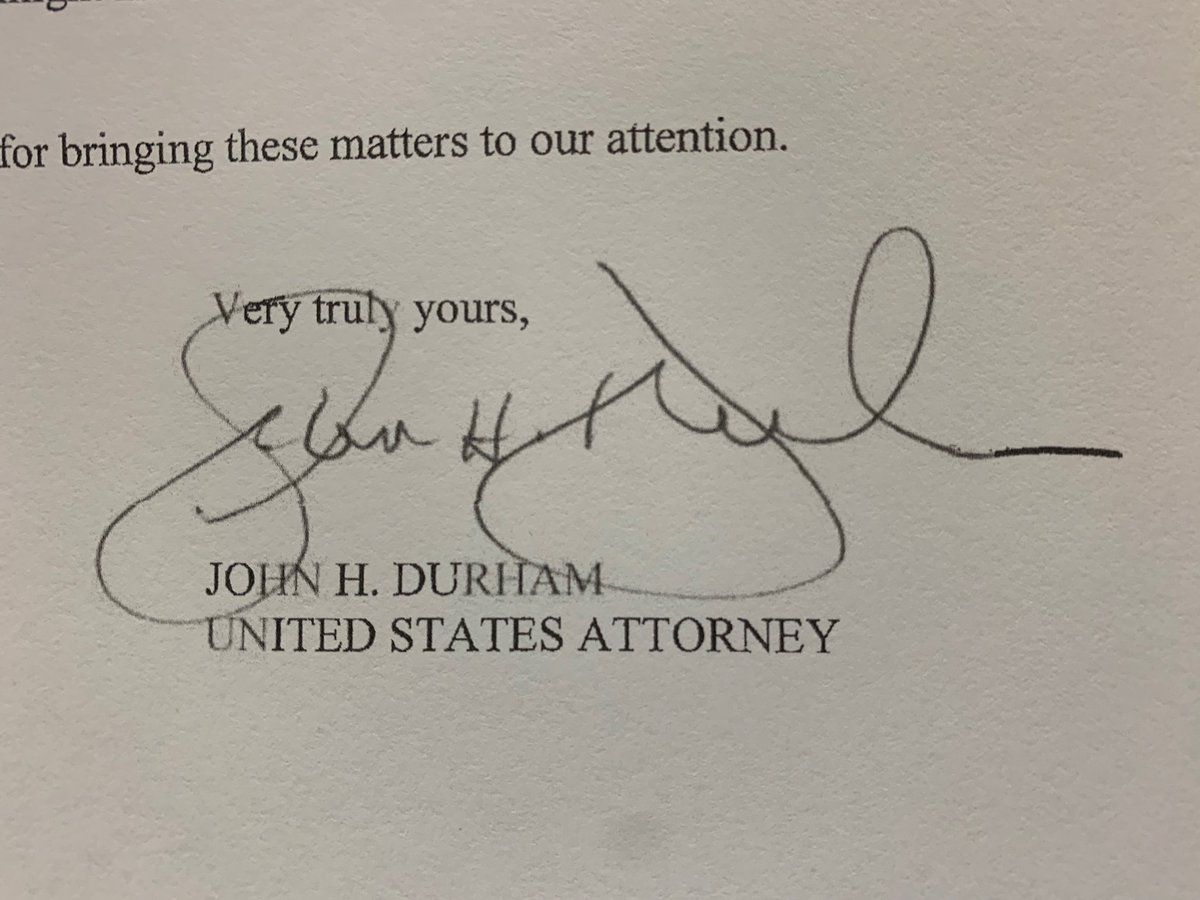 for bringing these matters to our attention.
Very truly yours,
John H. Durham
JOHN H. DURHAM
UNITED STATES ATTORNEY